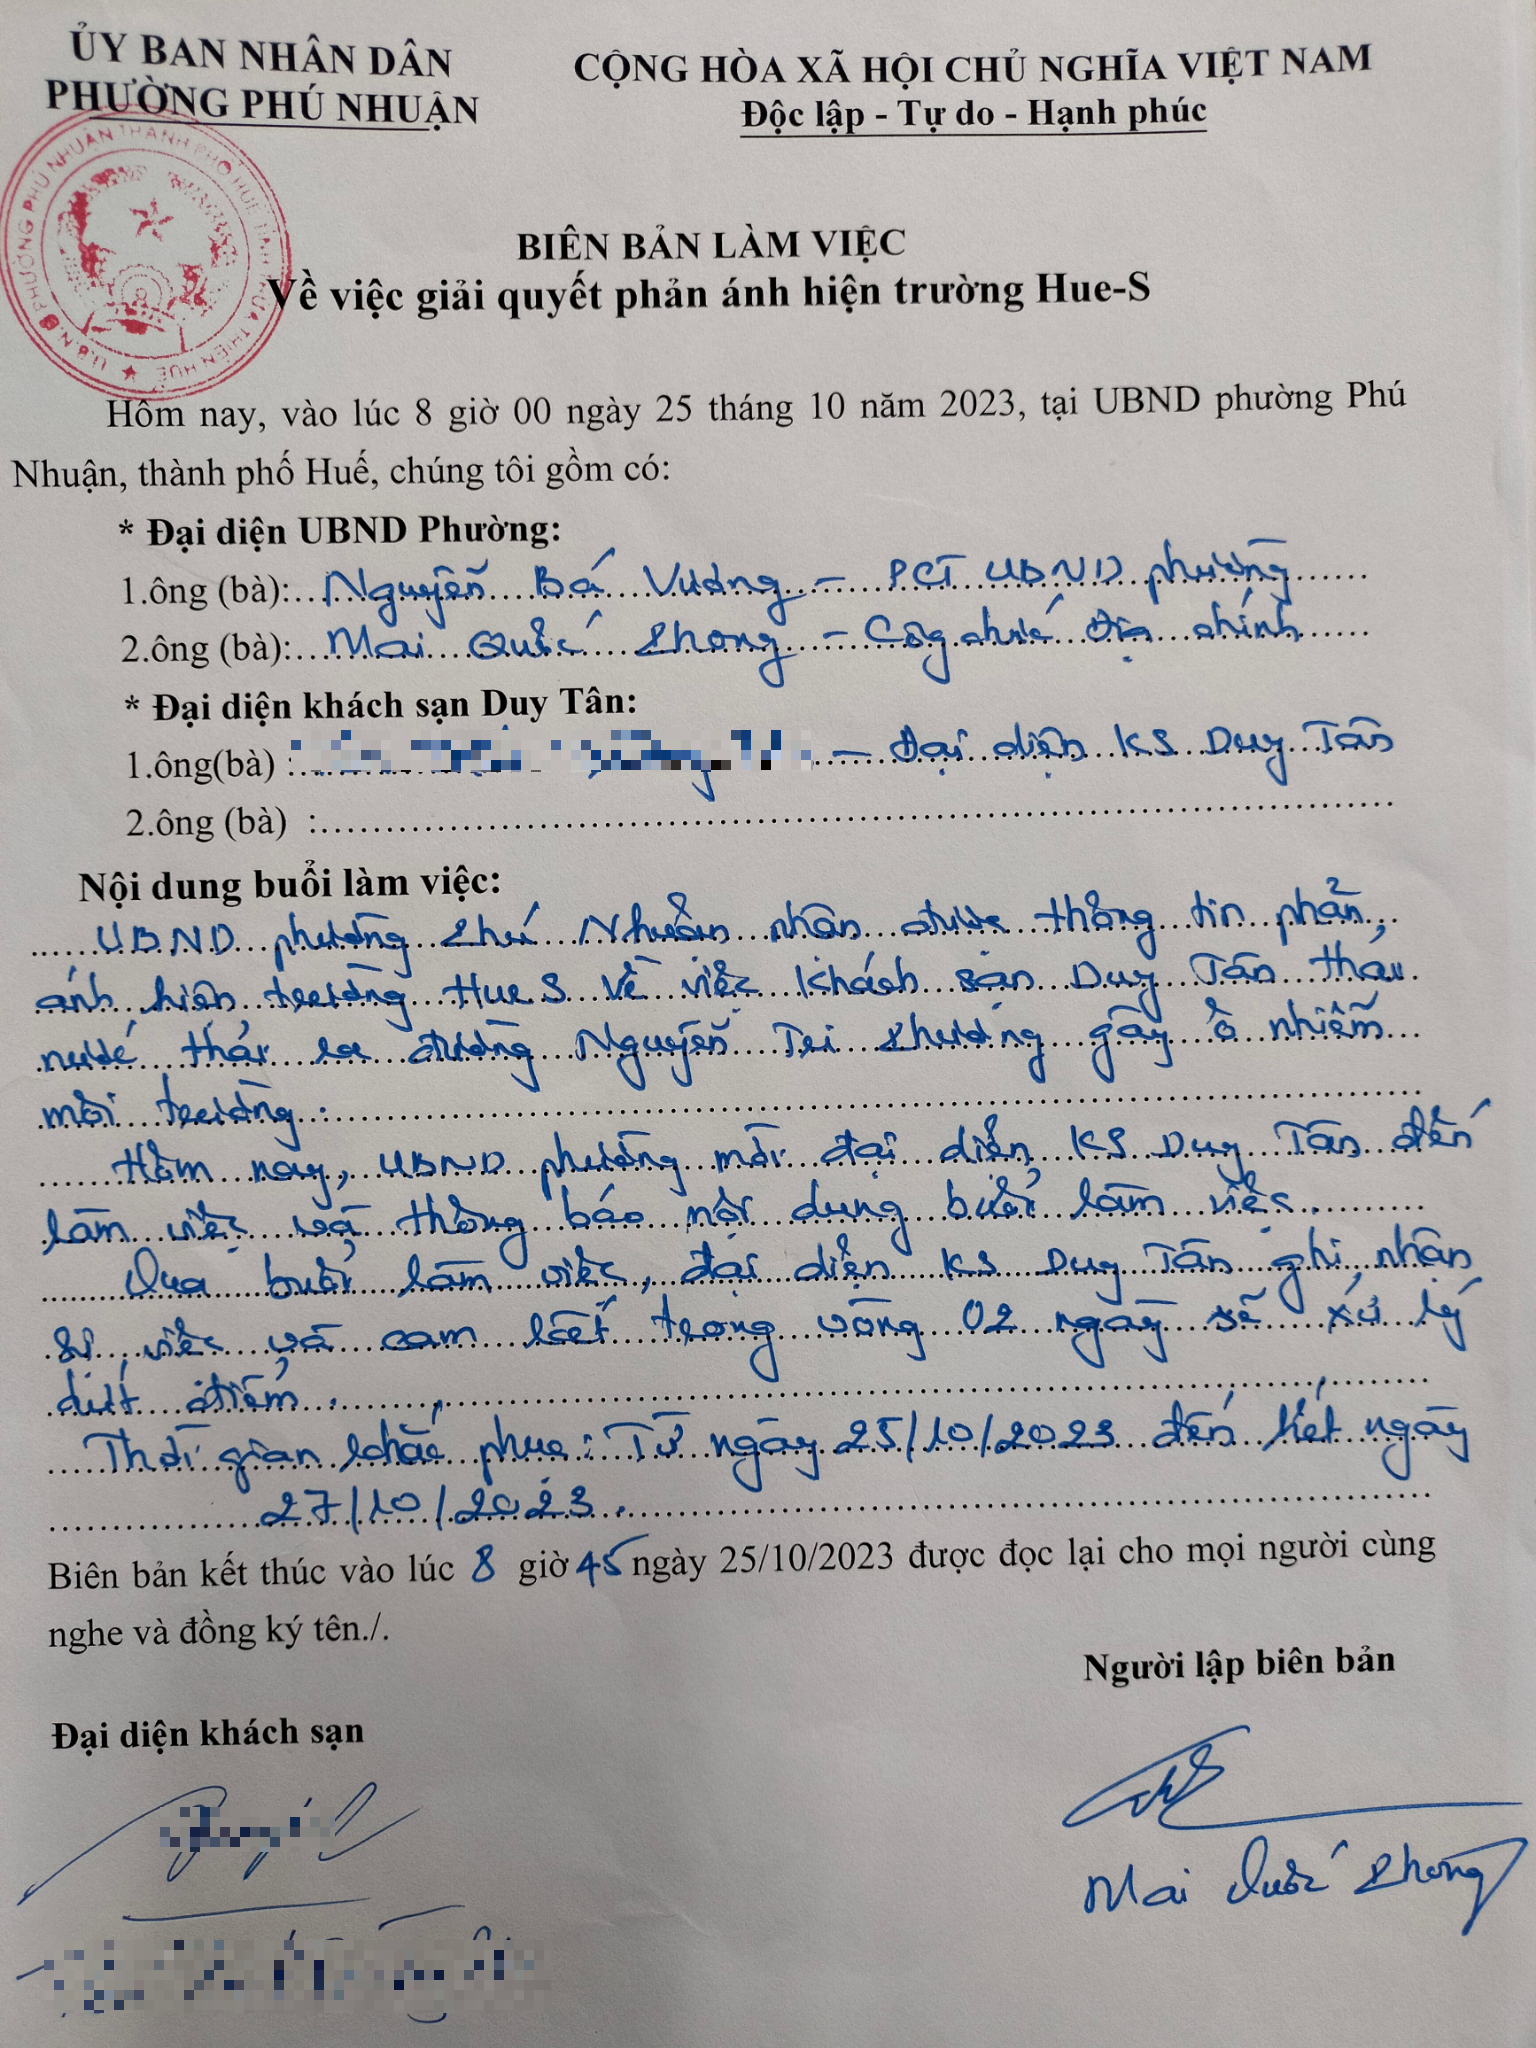 ỦY BAN NHÂN DÂN
PHƯỜNG PHÚ NHUẬN
CỘNG HÒA XÃ HỘI CHỦ NGHĨA VIỆT NAM
Độc lập - Tự do - Hạnh phúc
U.B.N.D PHƯỜNG PHÚ NHUẬN THÀNH PHỐ HUẾ TỈNH THỪA THIÊN HUẾ
BIÊN BẢN LÀM VIỆC
Về việc giải quyết phản ánh hiện trường Hue-S
Hôm nay, vào lúc 8 giờ 00 ngày 25 tháng 10 năm 2023, tại UBND phường Phú
Nhuận, thành phố Huế, chúng tôi gồm có:
* Đại diện UBND Phường:
1.ông (bà): Nguyễn Bá Vương - PCT UBND phường
2.ông (bà): Mai Quốc Phong - Công chức Địa chính
* Đại diện khách sạn Duy Tân:
1.ông(bà) : - Đại diện KS Duy Tân
2.ông (bà) :
Nội dung buổi làm việc:
UBND phường Phú Nhuận nhận được thông tin phản
ánh hiện trường Hue S về việc khách sạn Duy Tân thải
nước thải ra đường Nguyễn Tri Phương gây ô nhiễm
môi trường.
Hôm nay, UBND phường mời đại diện KS Duy Tân đến
làm việc và thông báo nội dung buổi làm việc.
Qua buổi làm việc, đại diện KS Duy Tân ghi nhận
sự việc và cam kết trong vòng 02 ngày sẽ xử lý
dứt điểm.
Thời gian khắc phục: Từ ngày 25/10/2023 đến hết ngày
27/10/2023.
Biên bản kết thúc vào lúc 8 giờ 45 ngày 25/10/2023 được đọc lại cho mọi người cùng
nghe và đồng ký tên./.
Người lập biên bản
Đại diện khách sạn
Mai Quốc Phong